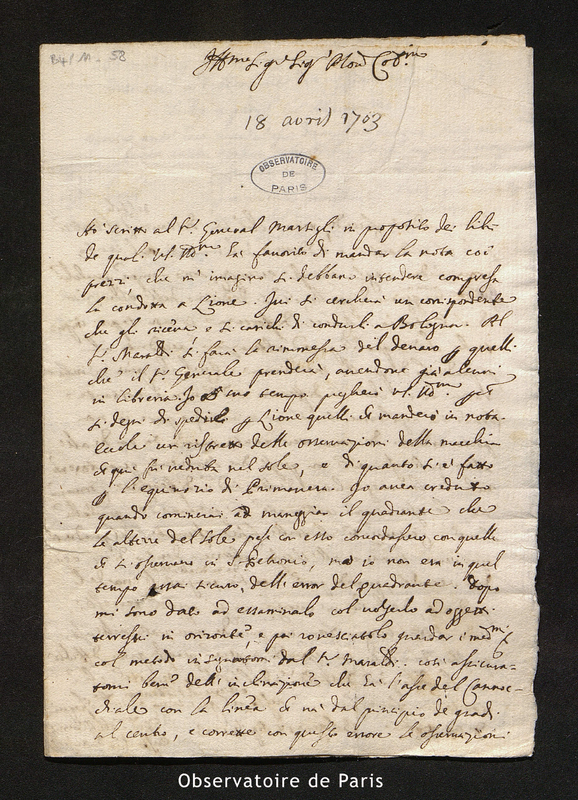 B4/11. 58
Illme Sigr Sigr Pron Colmo
18 avril 1703
OBSERVATOIRE
DE
PARIS
Ho scritto al Sr. General Marsigli in proposito dei libri
de quali VS. Illma hà favorito di mandar la nota coi
prezzi, che m'imagino si debbano intendere compresa
la condotta a Lione. Ivi si cercherà un corispondente
che gli riceva e si carichi di condurli a Bologna. Al
Sr. Maraldi si farà la rimmessa del denaro p quelli
che il Sr. Generale prenderà, avendone già alcuni
in libreria. Io a suo tempo pregherò VS. Illma
si degni di spedirli p Lione quelli di manderò in nota.
Eccole un ristretto delle osservazioni della macchia
di qui si è veduta nel sole, e di quanto si è fatto
p l'equinozio di Primavera. Io avea creduto
quando cominciai ad maneggiar il quadrante che
le altezze del Sole prese con esso concordassero con quelle
di si osservano in S. Petronio, ma io non era in quel
tempo assai sicuro, dell'error del quadrante. Dopo
mi sono dato ad essaminarlo col volgerlo ad oggetti
terrestri in orizonte, e poi rovesciatolo guardar i medmi
col metodo insegnatomi dal Sr. Maraldi. così assicura-
tomi bene dell'inclinazione che hà l'asse del Cannoc-
chiale con la linea di va dal principio de gradi
al centro, e corrette con questo errore le osservazioni
Observatoire de Paris